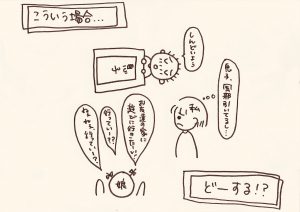 こういう場合…
しんどいよう
息子、風邪引いてるし…
私
お友達の家に
遊びに行きたーい!
行っていい!?
ねぇねぇ、行っていい?
娘
どーする!?